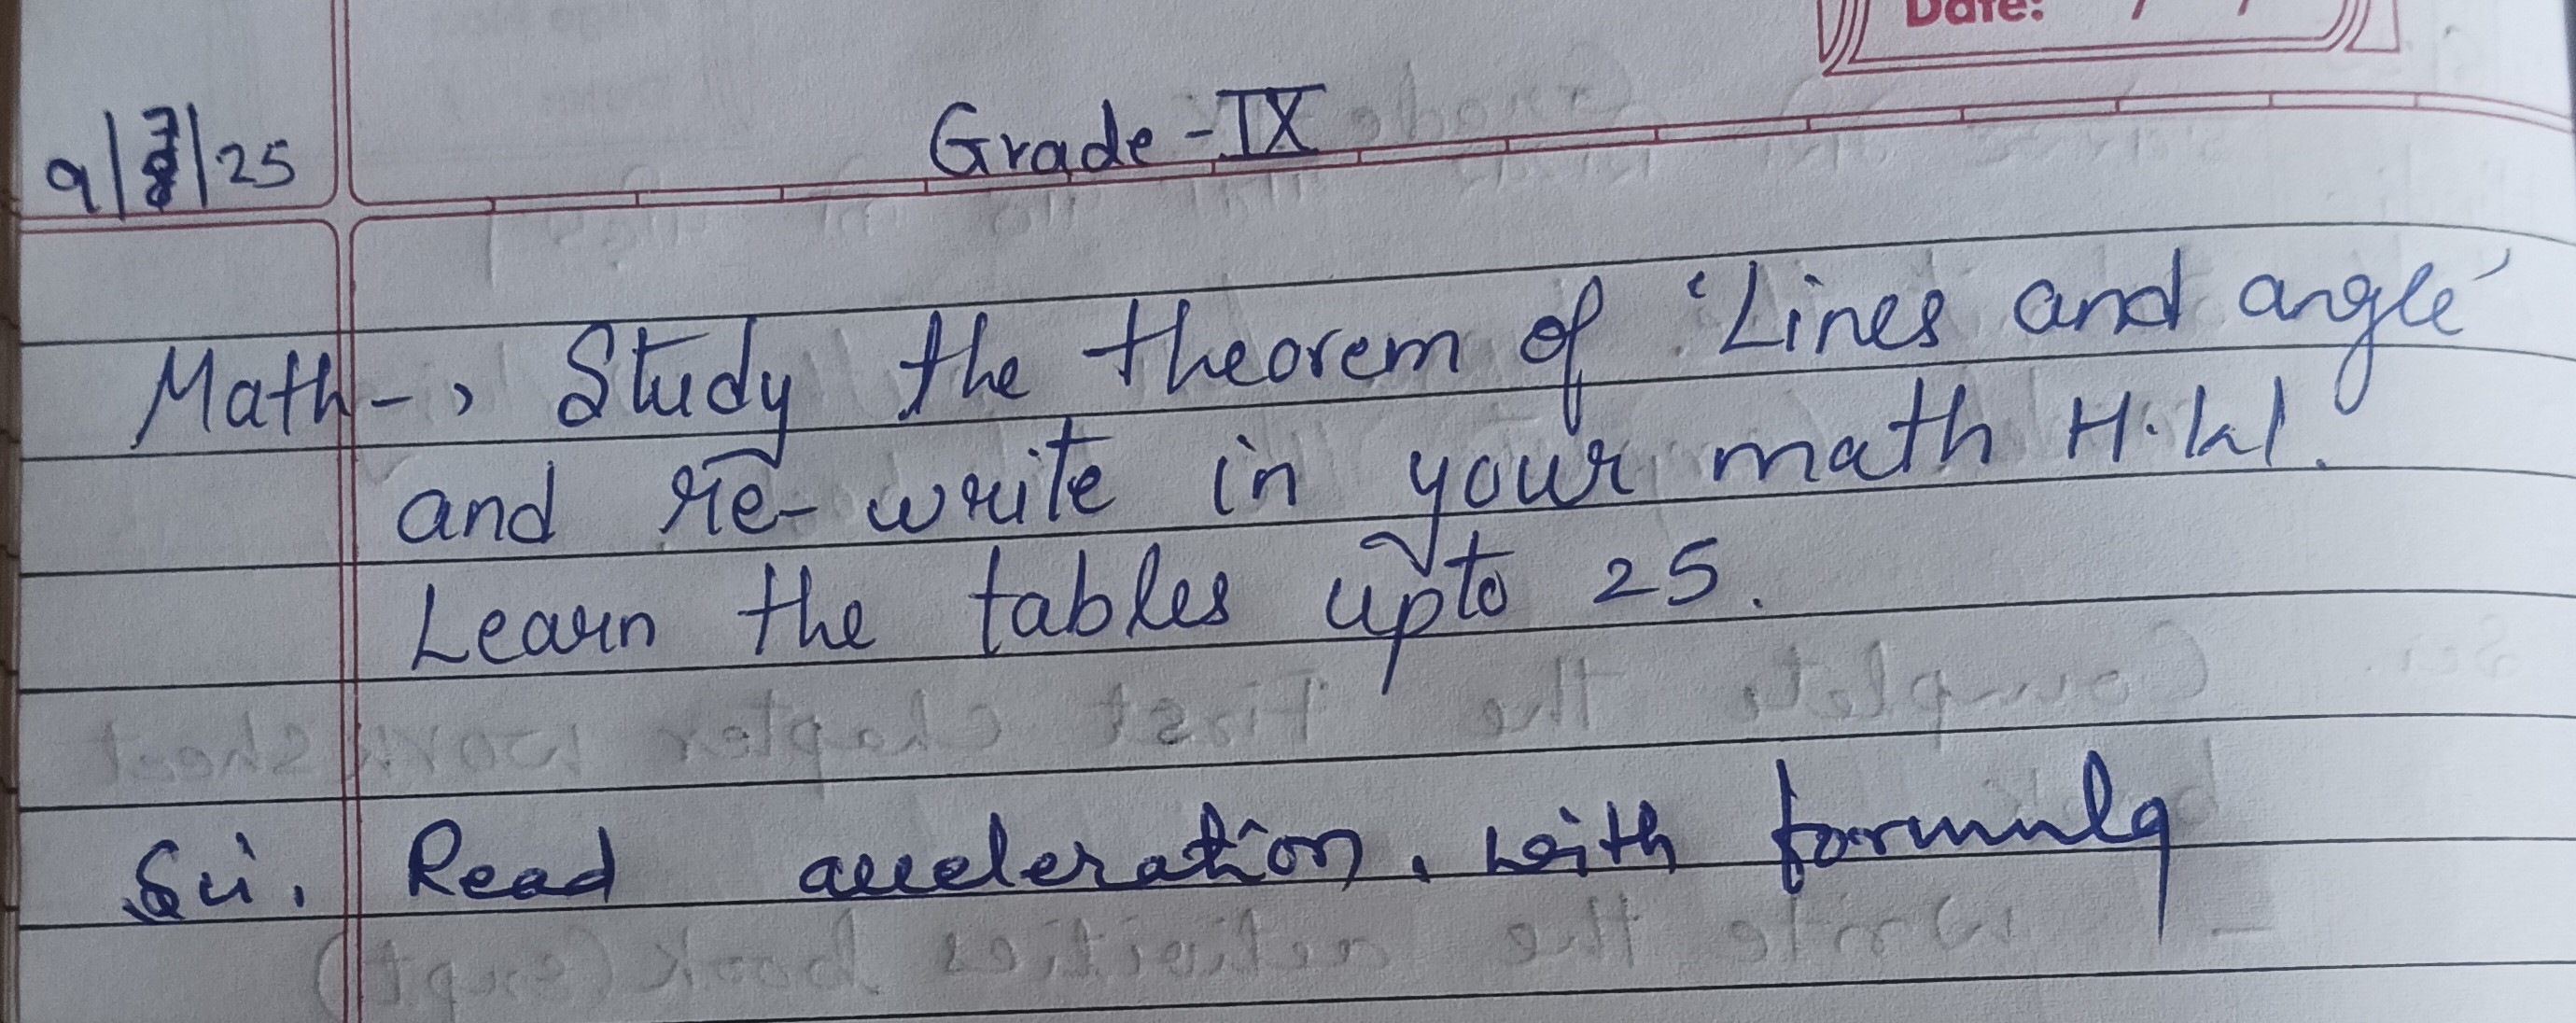 Date: / /
9/7/25
Grade - IX
Math -> Study the theorem of 'Lines and angle'
and re-write in your math H.W.
Learn the tables upto 25.
Sci. Read acceleration. with formula